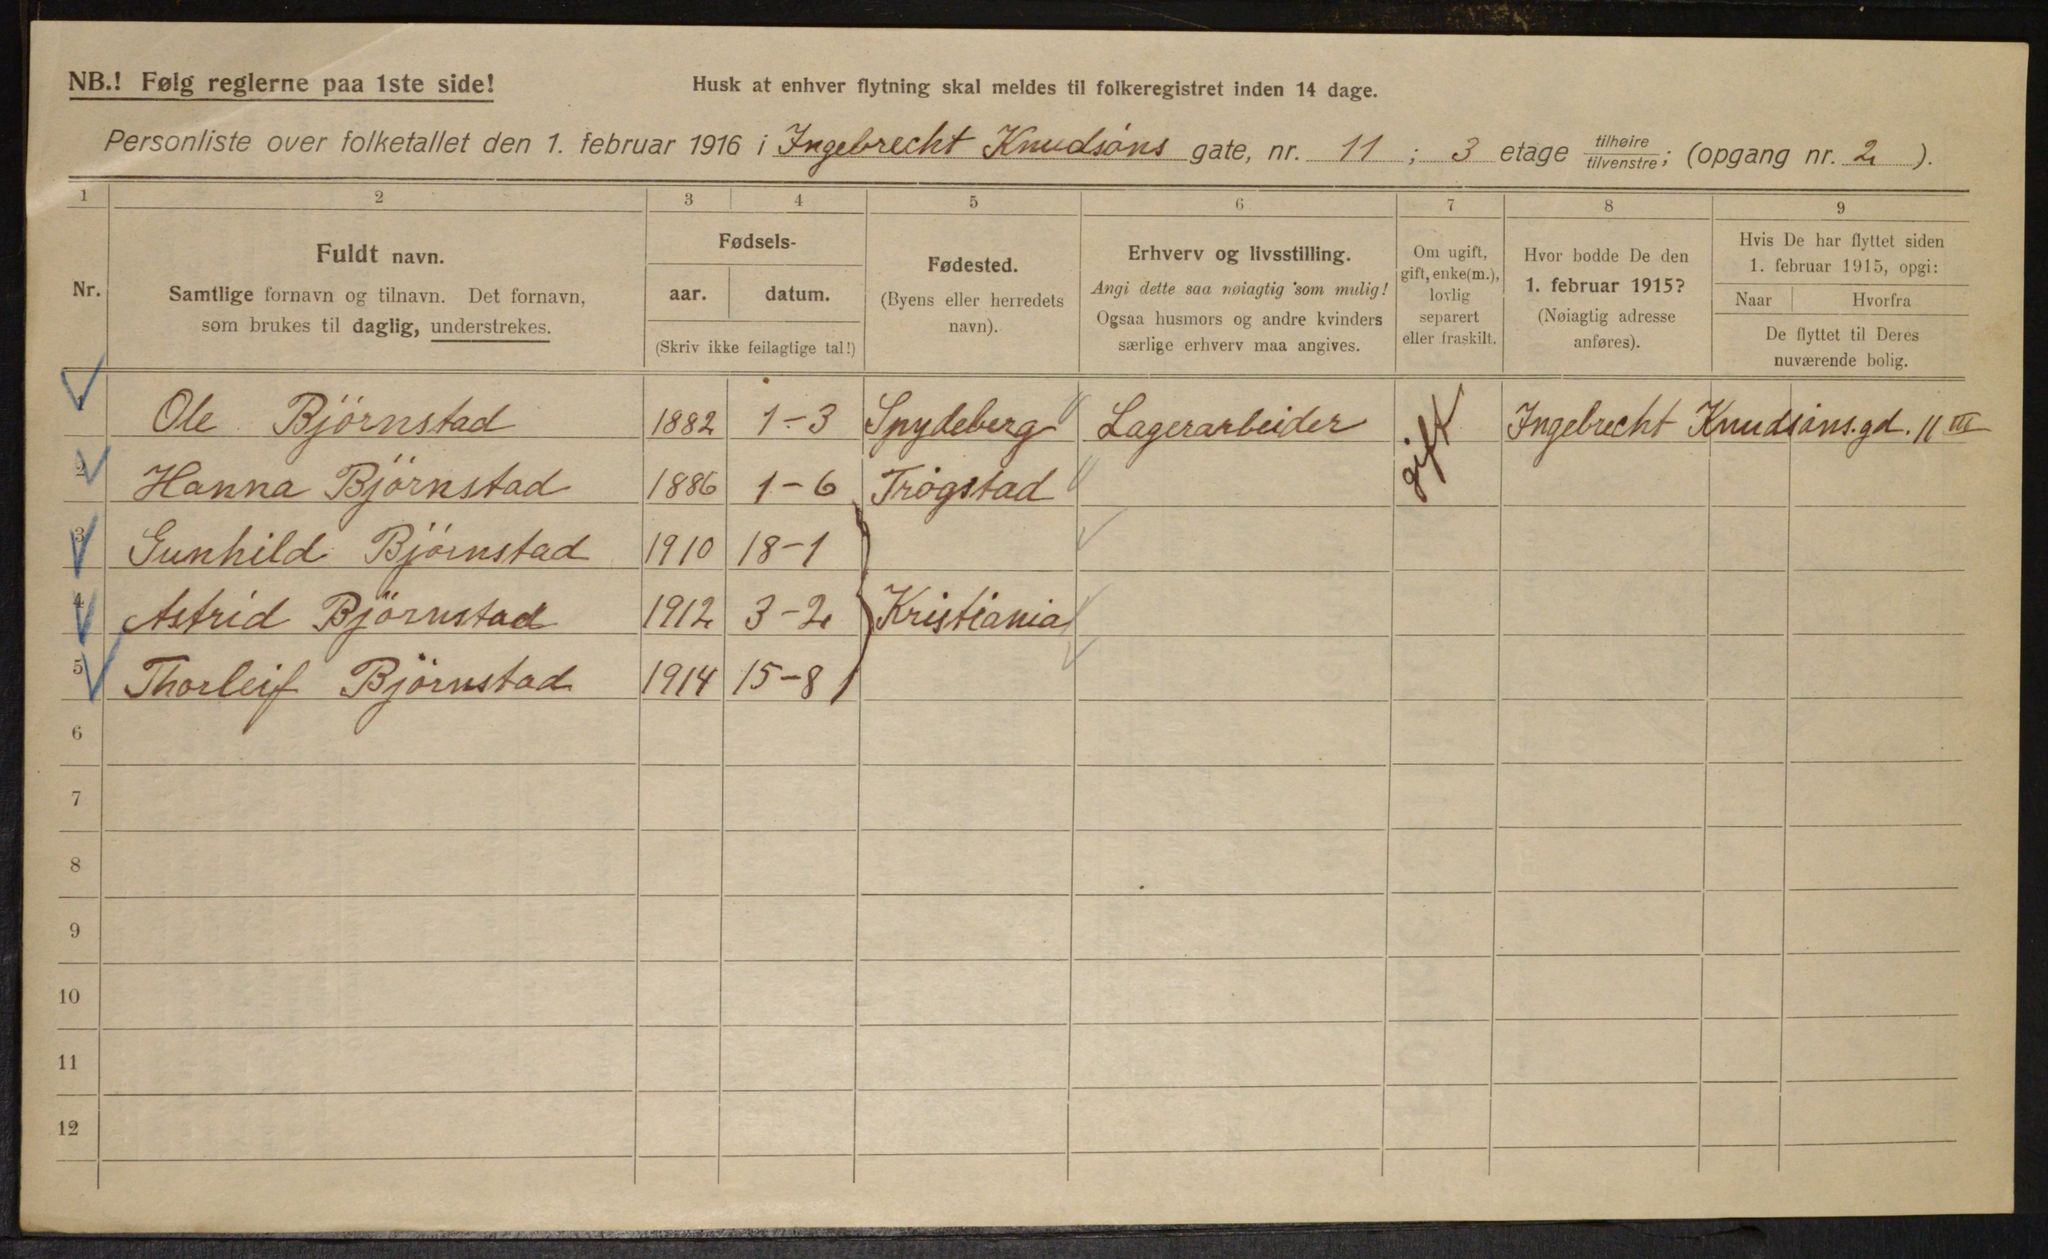 NB.! Følg reglerne paa 1ste side!
Husk at enhver flytning skal meldes til folkeregistret inden 14 dage.
Personliste over folketallet den 1. februar 1916 i Ingebrecht Knudsöns gate, nr. 11 ; 3 etage tilhøire/tilvenstre; (opgang nr. 2 ).
1 2 3 4 5 6 7 8 9
Nr.
Fuldt navn.
Samtlige fornavn og tilnavn. Det fornavn,
som brukes til daglig, understrekes.
Fødsels-
aar. datum.
(Skriv ikke feilagtige tal!)
Fødested.
(Byens eller herredets
navn).
Erhverv og livsstilling.
Angi dette saa nøiagtig som mulig!
Ogsaa husmors og andre kvinders
særlige erhverv maa angives.
Om ugift,
gift, enke(m.),
lovlig
separert
eller fraskilt.
Hvor bodde De den
1. februar 1915?
(Nøiagtig adresse
anføres).
Hvis De har flyttet siden
1. februar 1915, opgi:
Naar Hvorfra
De flyttet til Deres
nuværende bolig.
1 Ole Björnstad 1882 1-3 Spydeberg Lagerarbeider gift Ingebrecht Knudsöns.gd. 11 III
2 Hanna Björnstad 1886 1-6 Trögstad
3 Gunhild Björnstad 1910 18-1
4 Astrid Björnstad 1912 3-2 Kristiania
5 Thorleif Björnstad 1914 15-8
6
7
8
9
10
11
12